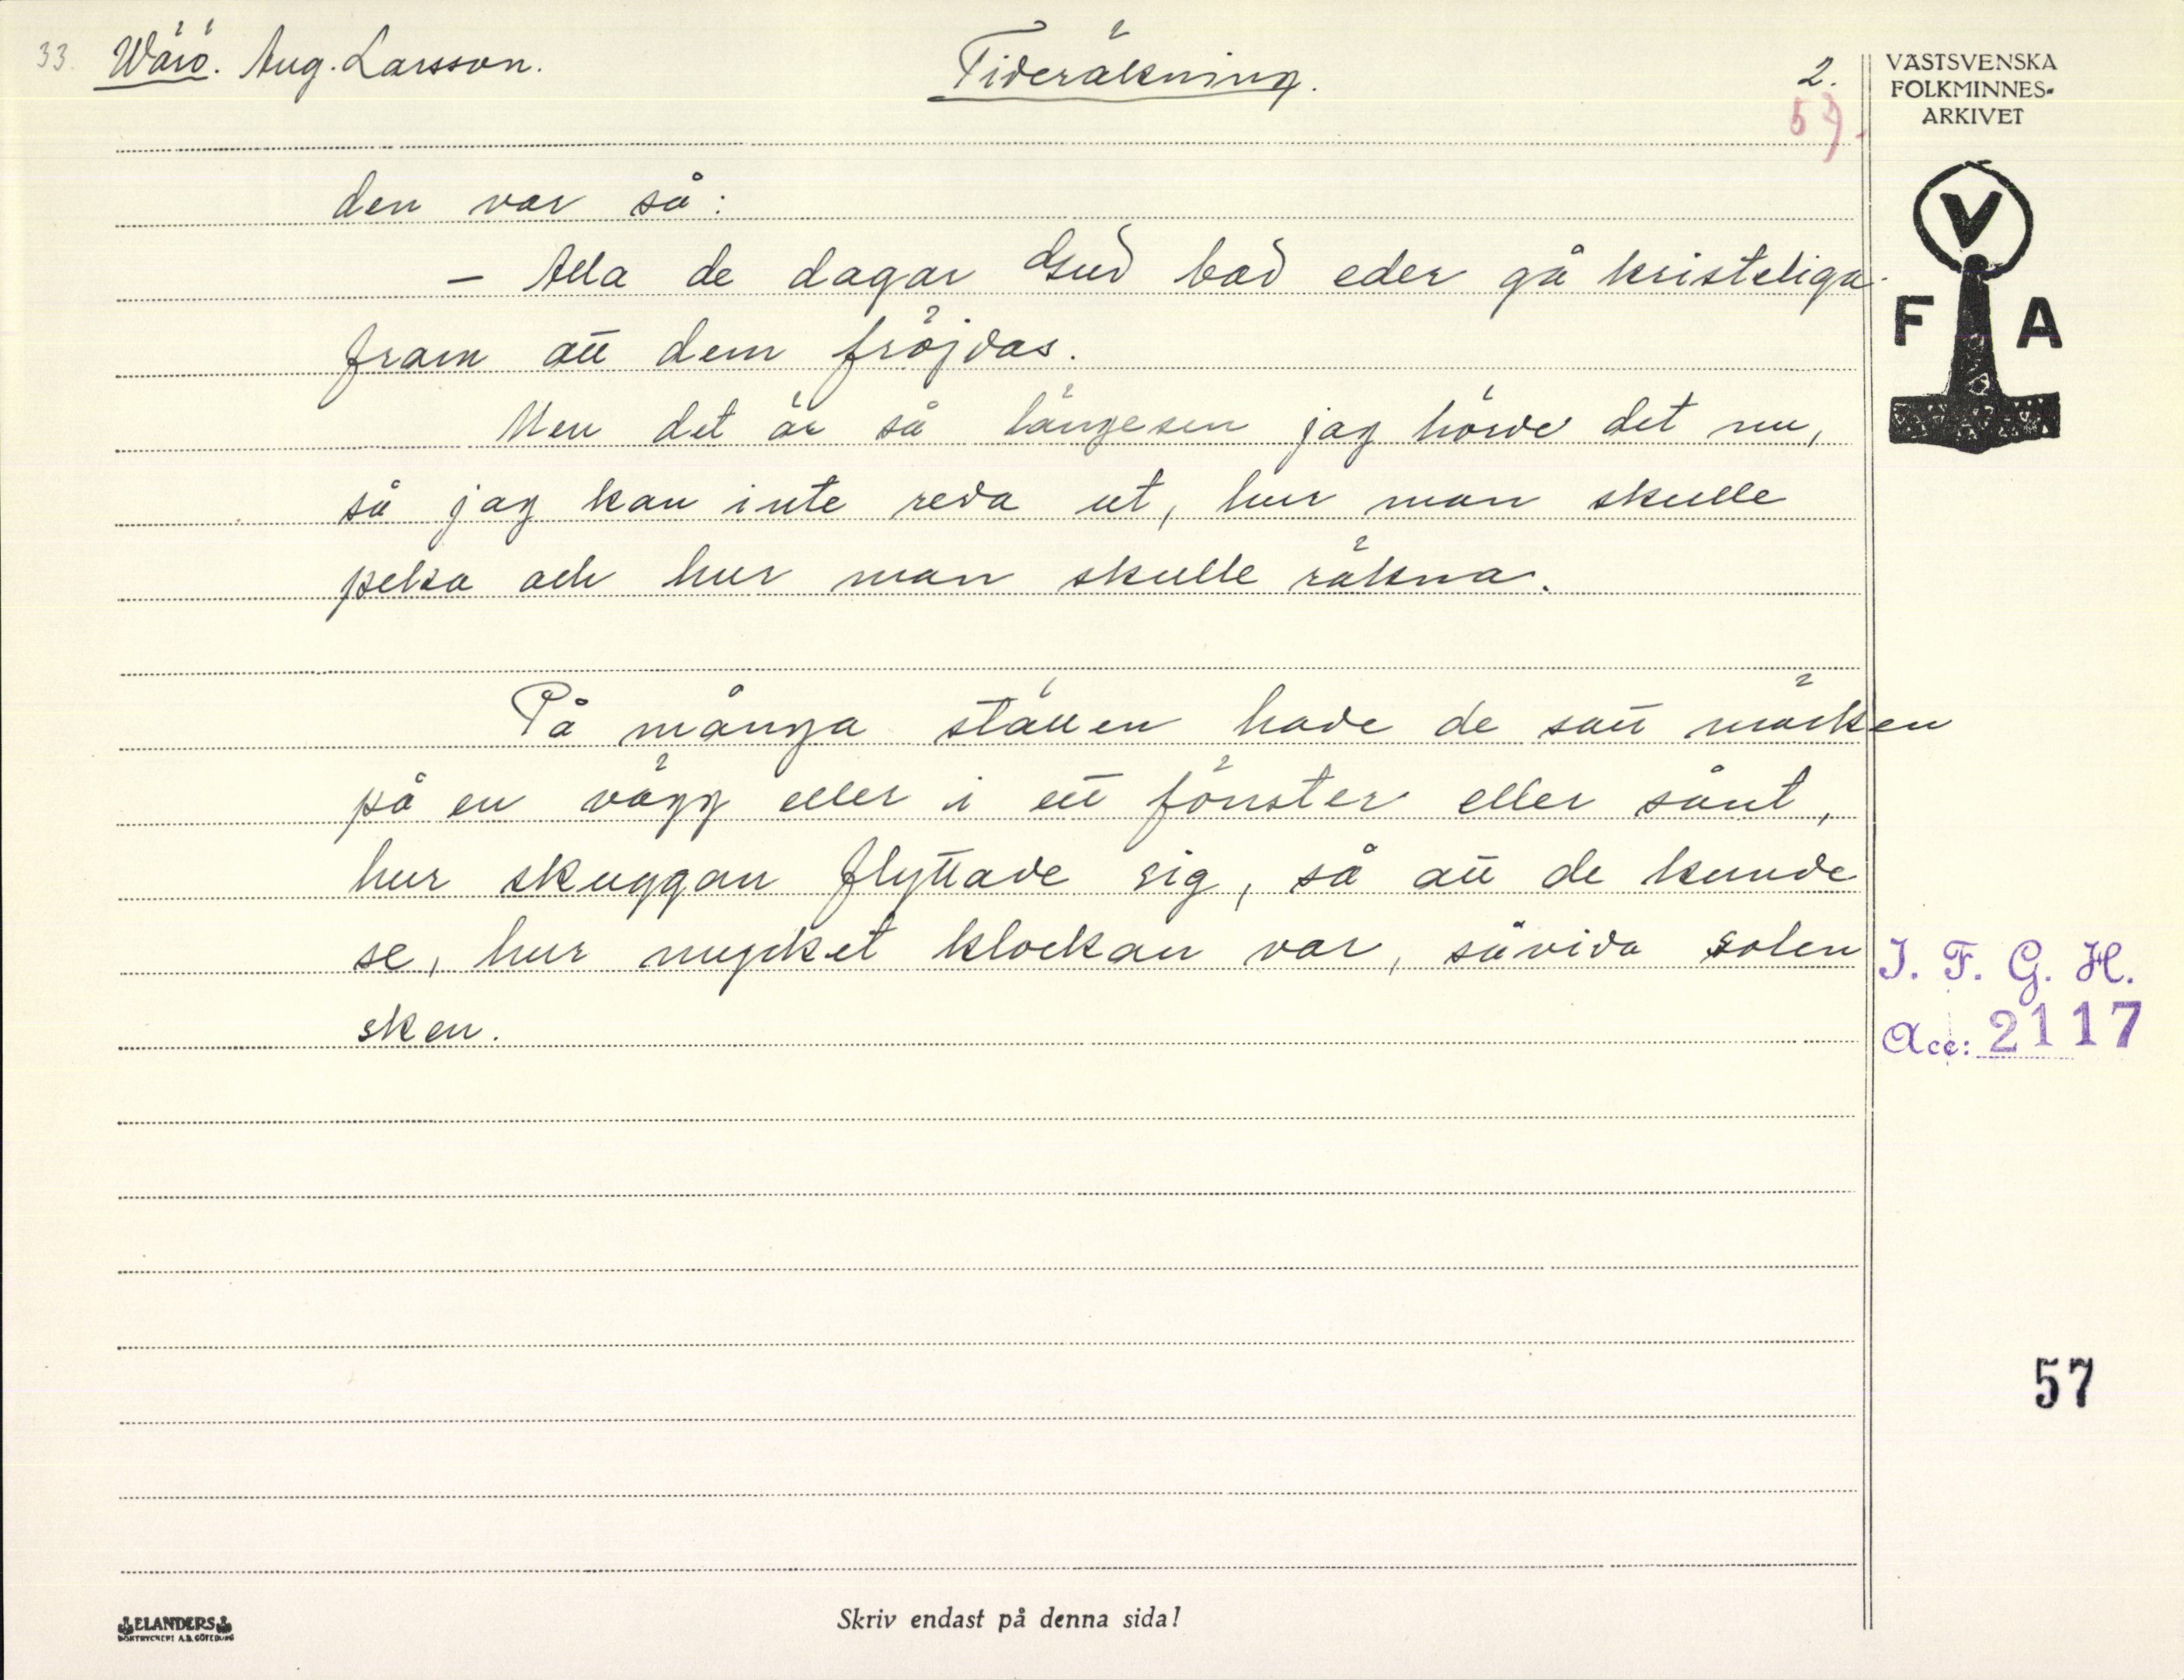 33. Wärö. Aug. Larsson. Tideräkning. 2.
57.
VÄSTSVENSKA
FOLKMINNES-
ARKIVET
V
F A
den var så:
– Alla de dagar Gud bad eder gå kristeliga
fram att dem fröjdas.
Men det är så längesen jag hörde det nu,
så jag kan inte reda ut, hur man skulle
peka och hur man skulle räkna.
På många ställen hade de satt märken
på en vägg eller i ett fönster eller sånt,
hur skuggan flyttade sig, så att de kunde
se, hur mycket klockan var, såvida solen
sken.
I. F. G. H.
Acc: 2117
57
ELANDERS
BOKTRYCKERI A.B. GÖTEBORG
Skriv endast på denna sida!